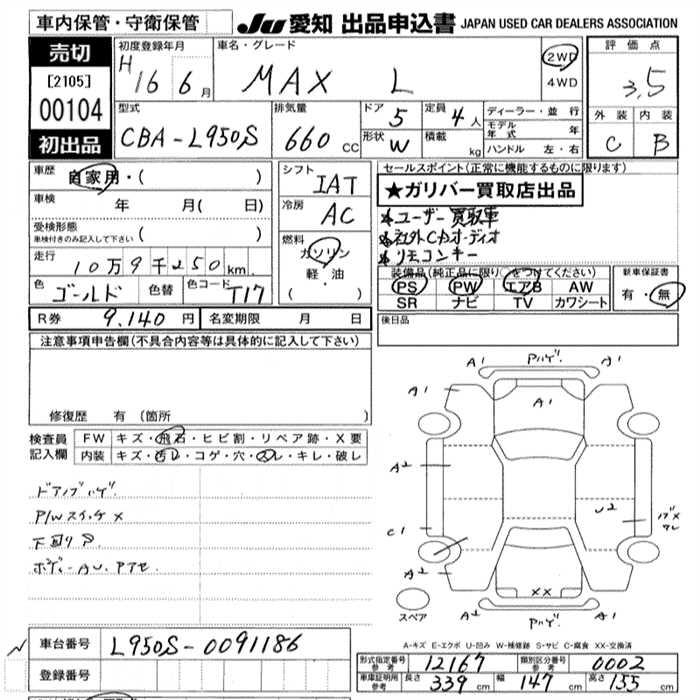 車内保管・守衛保管
JU 愛知 出品申込書 JAPAN USED CAR DEALERS ASSOCIATION
売切
[2105]
00104
初出品
初度登録年月
H16 6月
車名・グレード
MAX L
2WD
4WD
評価点
3.5
外装 内装
C B
型式
CBA-L950S
排気量
660 cc
ドア 5
定員 4人
形状 W
積載 kg
ディーラー・並行
モデル年式 年
ハンドル 左・右
車歴 自家用・( )
車検 年 月( 日)
受検形態 ( )
車検付きのみ記入して下さい
走行 10万9千250km
色 ゴールド 色替 色コード T17
シフト
IAT
冷房
AC
燃料
ガソリン
軽・油
( )
セールスポイント(正常に機能するものに限ります)
★ガリバー買取店出品
★ユーザー買取車
★社外CDオーディオ
★リモコンキー
装備品(純正品に限り○をつけてください)
PS PW エアB AW
SR ナビ TV カワシート
新車保証書
有・無
R券 9.140円 名変期限 月 日
後日品
注意事項申告欄(不具合内容等は具体的に記入して下さい)
修復歴 有(箇所 )
検査員記入欄
FW キズ・飛石・ヒビ割・リペア跡・X要
内装 キズ・汚レ・コゲ・穴・スレ・キレ・破レ
ドアノブハゲ
P/Wスイッチ×
下回りP
ボディーAU.アセ
A1 Pハゲ. A1
A1 A1
A2
U2
C1
A2 XX A2
Pハゲ.
スペア
A-キズ E-エクボ U-凹み W-補修跡 S-サビ C-腐食 XX-交換済
車台番号 L950S-0091186
登録番号
形式指定番号 参考 12167 類別区分番号 参考 0002
車庫証明用 参考 長さ 339cm 幅 147cm 高さ 155cm